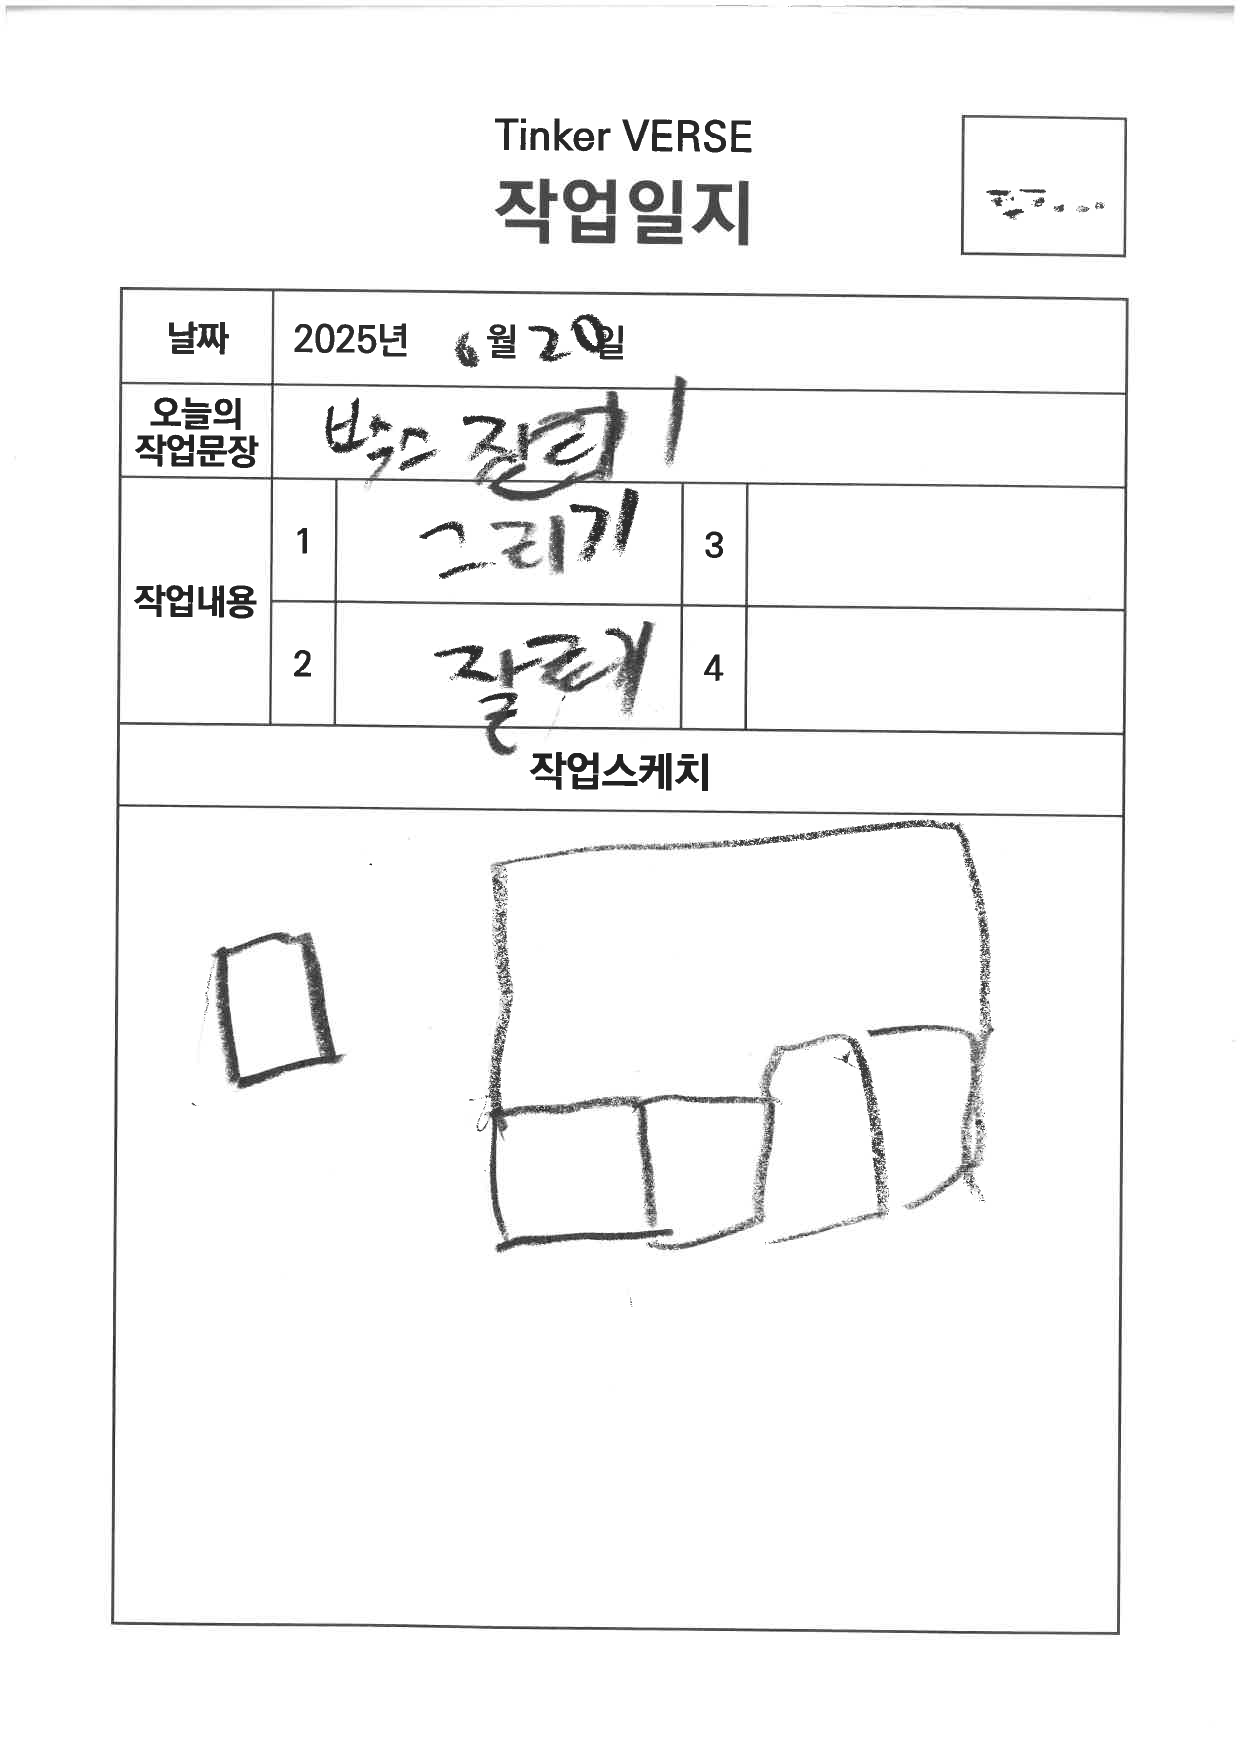 Tinker VERSE
작업일지
날짜 2025년 6월 20일
오늘의 작업문장 박스
작업내용
1 그리기 3
2 4
작업스케치